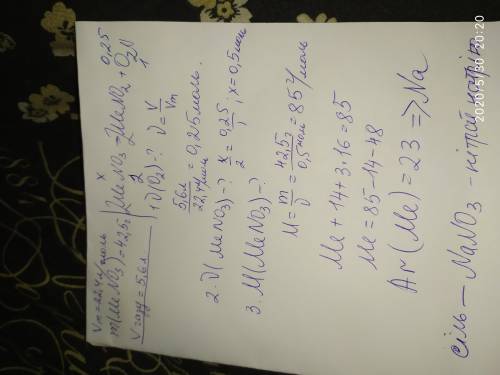 Vm = 22,4 л/моль
m(MeNO3) = 42,5г
Vгазу = 5,6л
x 0,25
2MeNO3 = 2MeNO2 + O2↑
2 1
1. ν(O2) - ? ν = V/Vm
5,6л/22,4л/моль = 0,25моль.
2. ν(MeNO3) - ? x/2 = 0,25/1; x = 0,5моль
3. M(MeNO3) - ?
M = m/ν = 42,5г/0,5моль = 85г/моль
Me + 14 + 3 · 16 = 85
Me = 85 - 14 - 48
Ar(Me) = 23 => Na
сіль — NaNO3 - нітрат натрію
2020/5/30 20:20